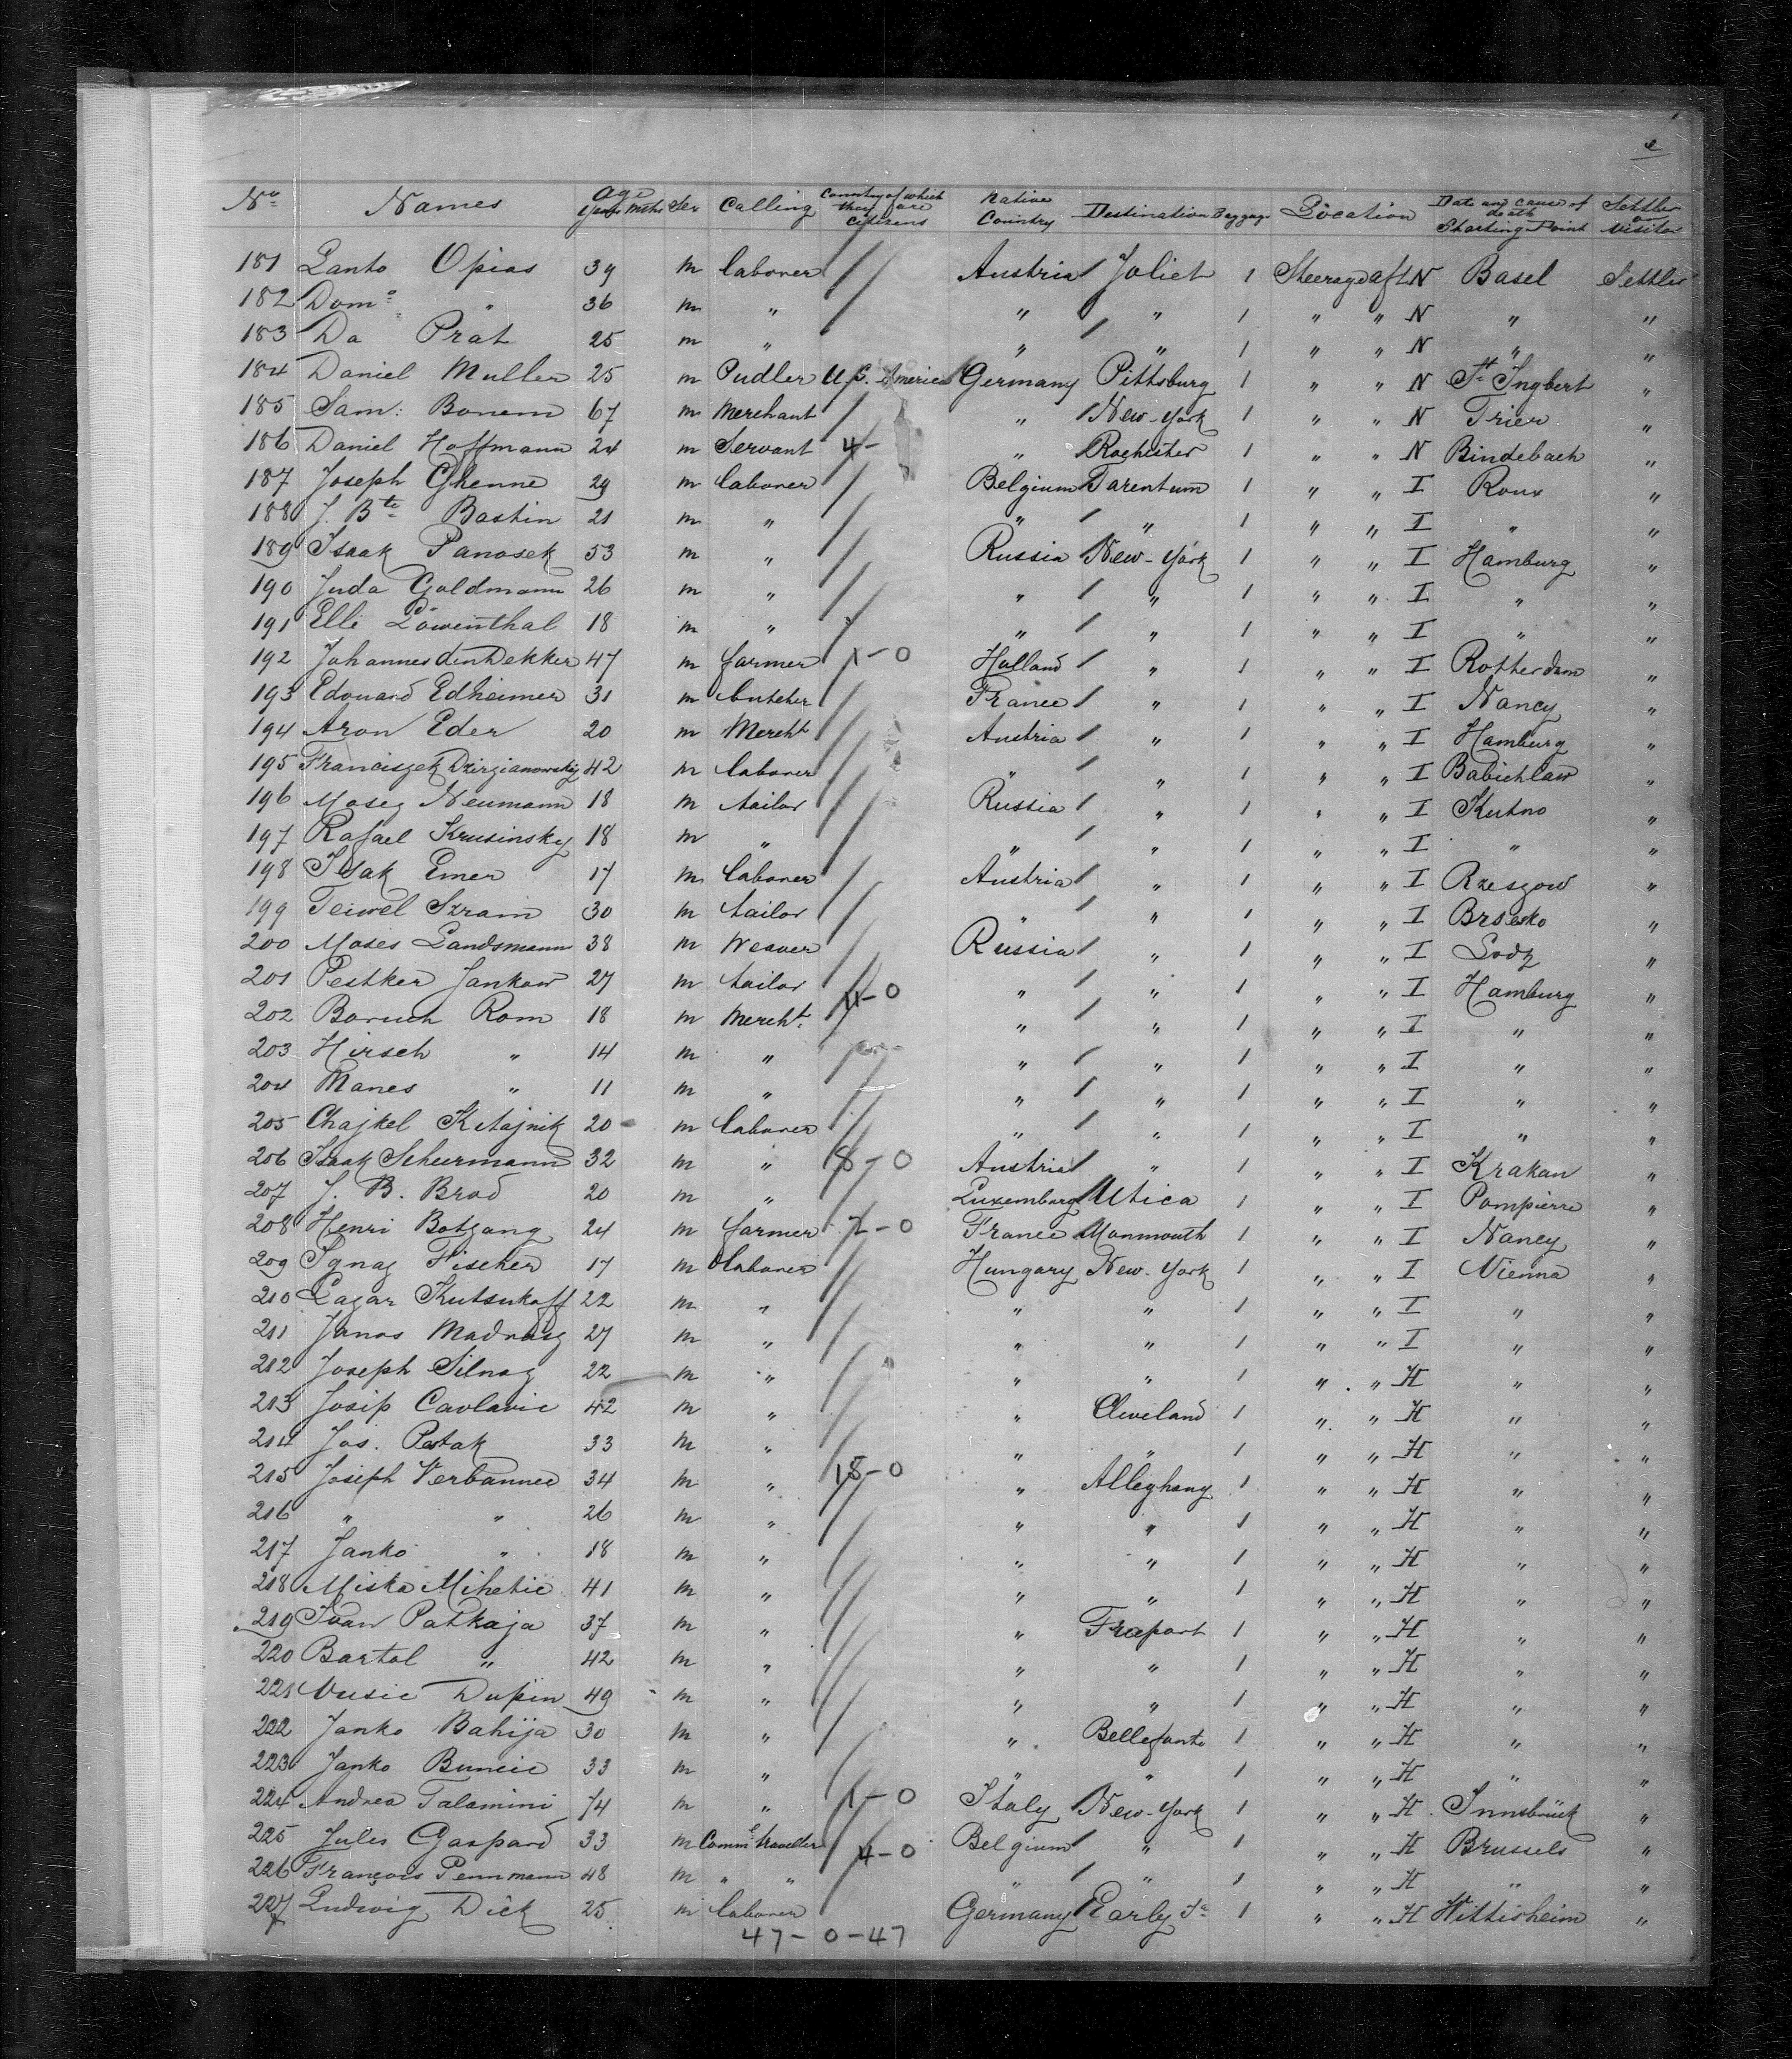 No Names Age Years Mths Sex Calling Country of which they are citizens Native Country Destination Baggage Location Date and cause of death Starting Point Settler or Visitor
181 Santo Opias 39 m laborer Austria Joliet 1 Steerage aft N Basel Settler
182 Domo " 36 m " " " 1 " " N " "
183 Da Prat 25 m " " " 1 " " N " "
184 Daniel Muller 25 m Pudler U.S. America Germany Pittsburg 1 " " N St Ingbert "
185 Sam: Bonem 67 m Merchant " New-York 1 " " N Trier "
186 Daniel Hoffmann 24 m Servant 4- " Rochester 1 " " N Bindebach "
187 Joseph Ghenne 29 m laborer Belgium Tarentum 1 " " I Roux "
188 J. Bte Bastin 21 m " " " 1 " " I " "
189 Isaak Panosek 53 m " Russia New-York 1 " " I Hamburg "
190 Juda Goldmann 26 m " " " 1 " " I " "
191 Elle Löwenthal 18 m " " " 1 " " I " "
192 Johannes den Dekker 47 m farmer 1-0 Holland " 1 " " I Rotterdam "
193 Edouard Edheimer 31 m butcher France " 1 " " I Nancy "
194 Aron Eder 20 m Mercht Austria " 1 " " I Hamburg "
195 Franciszek Dzirzianowsky 42 m laborer " " 1 " " I Babichlaw "
196 Mosez Neumann 18 m tailor Russia " 1 " " I Kutno "
197 Rafael Krusinsky 18 m " " " 1 " " I " "
198 Isak Emer 17 m laborer Austria " 1 " " I Rzeszow "
199 Teiwel Szram 30 m tailor " " 1 " " I Brsesko "
200 Moses Landsmann 38 m Weaver Russia " 1 " " I Lodz "
201 Pestker Jankow 27 m tailor 11-0 " " 1 " " I Hamburg "
202 Boruch Rom 18 m Mercht. " " 1 " " I " "
203 Hirsch " 14 m " " " 1 " " I " "
204 Manes " 11 m " " " 1 " " I " "
205 Chajkel Kitajnik 20 m laborer " " 1 " " I " "
206 Isaak Scheermann 32 m " 8-0 Austria " 1 " " I Krakau "
207 J. B. Brod 20 m " Luxemburg Utica 1 " " I Pompierre "
208 Henri Botzang 24 m farmer 2-0 France Monmouth 1 " " I Nancy "
209 Ignaz Fischer 17 m laborer Hungary New-York 1 " " I Vienna "
210 Lazar Kutsukoff 22 m " " " 1 " " I " "
211 Janos Madrasz 27 m " " " 1 " " I " "
212 Joseph Silnag 22 m " " " 1 " " H " "
213 Josip Cavlavic 42 m " " Cleveland 1 " " H " "
214 Jos. Postak 33 m " " " 1 " " H " "
215 Joseph Verbannec 34 m " 15-0 " Alleghany 1 " " H " "
216 " " 26 m " " " 1 " " H " "
217 Janko " 18 m " " " 1 " " H " "
218 Miska Mihetic 41 m " " " 1 " " H " "
219 Ivan Patkaja 37 m " " Freeport 1 " " H " "
220 Bartol " 42 m " " " 1 " " H " "
221 Vusic Dupin 49 m " " " 1 " " H " "
222 Janko Bahija 30 m " " Bellefonte 1 " " H " "
223 Janko Buncic 33 m " " " 1 " " H " "
224 Andrea Talamini 14 m " 1-0 Italy New-York 1 " " H Innsbrück "
225 Jules Gaspard 33 m Comml traveller 4-0 Belgium " 1 " " H Brussels "
226 François Pennmann 48 m " " " " 1 " " H " "
227 Ludwig Dick 25 m laborer Germany Early Ia 1 " " H Hittisheim "
47-0-47